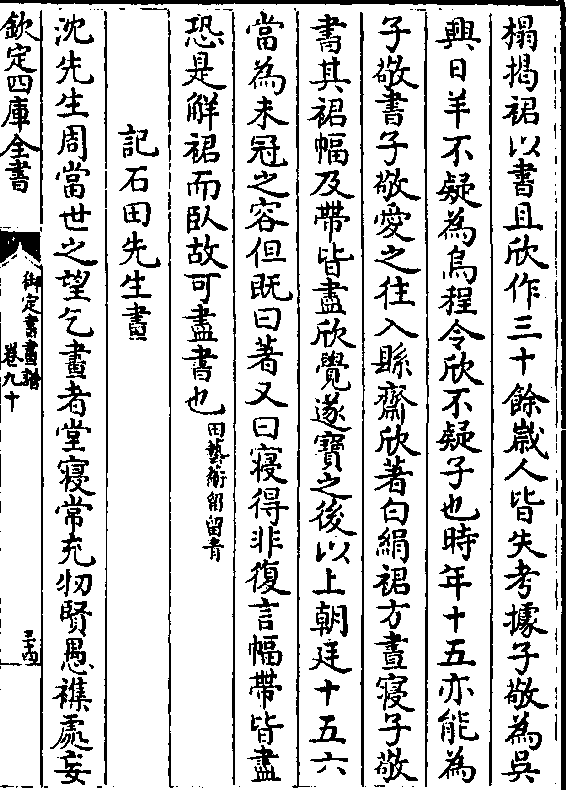 榻掲裙以書且欣作三十餘歳人皆失考據子敬為吳
興日羊不疑為烏程令欣不疑子也時年十五亦能為
子敬書子敬愛之往入縣齋欣著白絹裙方晝寝子敬
書其裙幅及帶皆盡欣覺遂寶之後以上朝廷十五六
當為未冠之容但既曰著又曰寝得非復言幅帶皆盡
恐是解裙而臥故可盡書也田藝蘅留留青
記石田先生畫
沈先生周當世之望乞畫者堂寝常充牣賢愚襍處妄
欽定四庫全書
御定書畫譜
卷九十
三十四